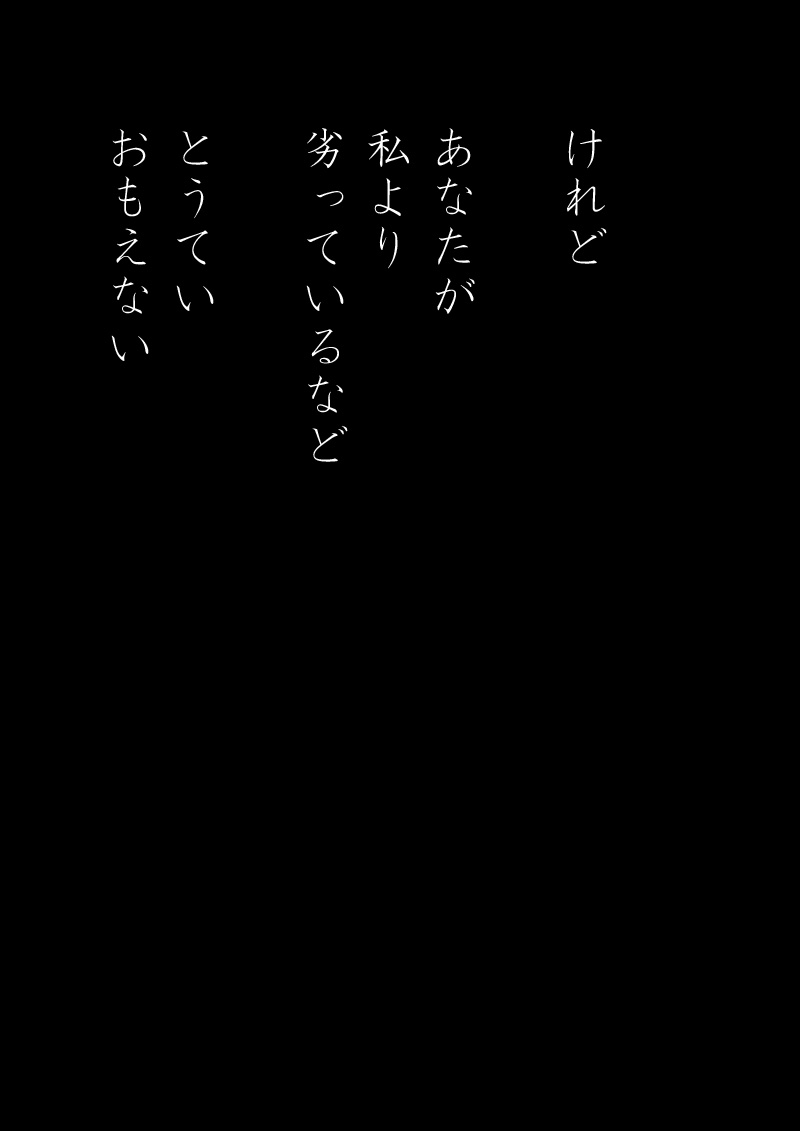 けれど
あなたが
私より
劣っているなど
とうてい
おもえない